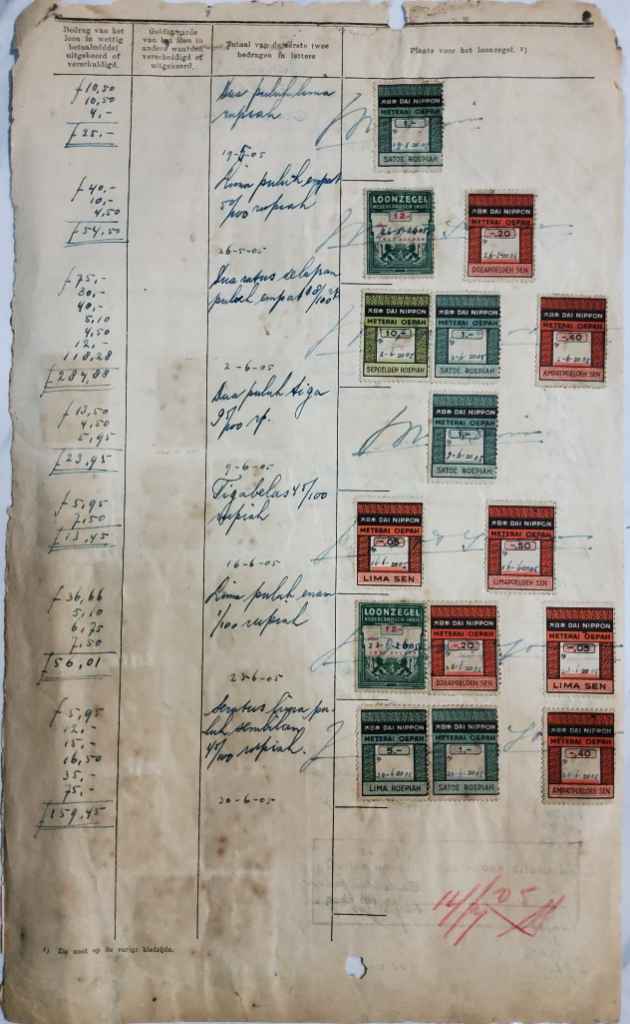 Bedrag van het
loon in wettig
betaalmiddel
uitgekeerd of
verschuldigd.
Geldswaarde
van het loon in
andere waarden
verschuldigd of
uitgekeerd.
Totaal van de eerste twee
bedragen in letters
Plaats voor het loonzegel. ²)
f 10,50
10,50
4,-
f 25,-
Dua puluh lima
rupiah
19-5-05
DAI NIPPON
METERAI OEPAH
1,-
SATOE ROEPIAH
f 40,-
10,-
4,50
f 54,50
Lima puluh empat
50/100 rupiah
26-5-05
LOONZEGEL
NEDERLANDSCH-INDIË
12
DAI NIPPON
METERAI OEPAH
-.20
DOEAPOELOEH SEN
f 75,-
30,-
40,-
5,10
4,50
12,-
118,28
f 284,88
Dua ratus delapan
puloh empat 88/100 rp.
2-6-05
DAI NIPPON
METERAI OEPAH
10,-
SEPOELOEH ROEPIAH
DAI NIPPON
METERAI OEPAH
1,-
SATOE ROEPIAH
DAI NIPPON
METERAI OEPAH
-.40
AMPATPOELOEH SEN
f 13,50
4,50
5,95
f 23,95
Dua puluh tiga
95/100 rp.
9-6-05
DAI NIPPON
METERAI OEPAH
1,-
9-6-2605
SATOE ROEPIAH
f 5,95
7,50
f 13,45
Tigabelas 45/100
rupiah
16-6-05
DAI NIPPON
METERAI OEPAH
-.05
LIMA SEN
DAI NIPPON
METERAI OEPAH
-.50
LIMAPOELOEH SEN
f 36,66
5,10
6,75
7,50
f 56,01
Lima puluh enam
1/100 rupiah
23-6-05
LOONZEGEL
NEDERLANDSCH-INDIË
12
DAI NIPPON
METERAI OEPAH
-.20
DOEAPOELOEH SEN
DAI NIPPON
METERAI OEPAH
-.05
LIMA SEN
f 5,95
12,-
15,-
16,50
35,-
75,-
f 159,45
Seratus lima pu-
luh sembilan
45/100 rupiah.
DAI NIPPON
METERAI OEPAH
5,-
LIMA ROEPIAH
DAI NIPPON
METERAI OEPAH
1,-
SATOE ROEPIAH
DAI NIPPON
METERAI OEPAH
-.40
AMPATPOELOEH SEN
²) Zie noot op de vorige bladzijde.